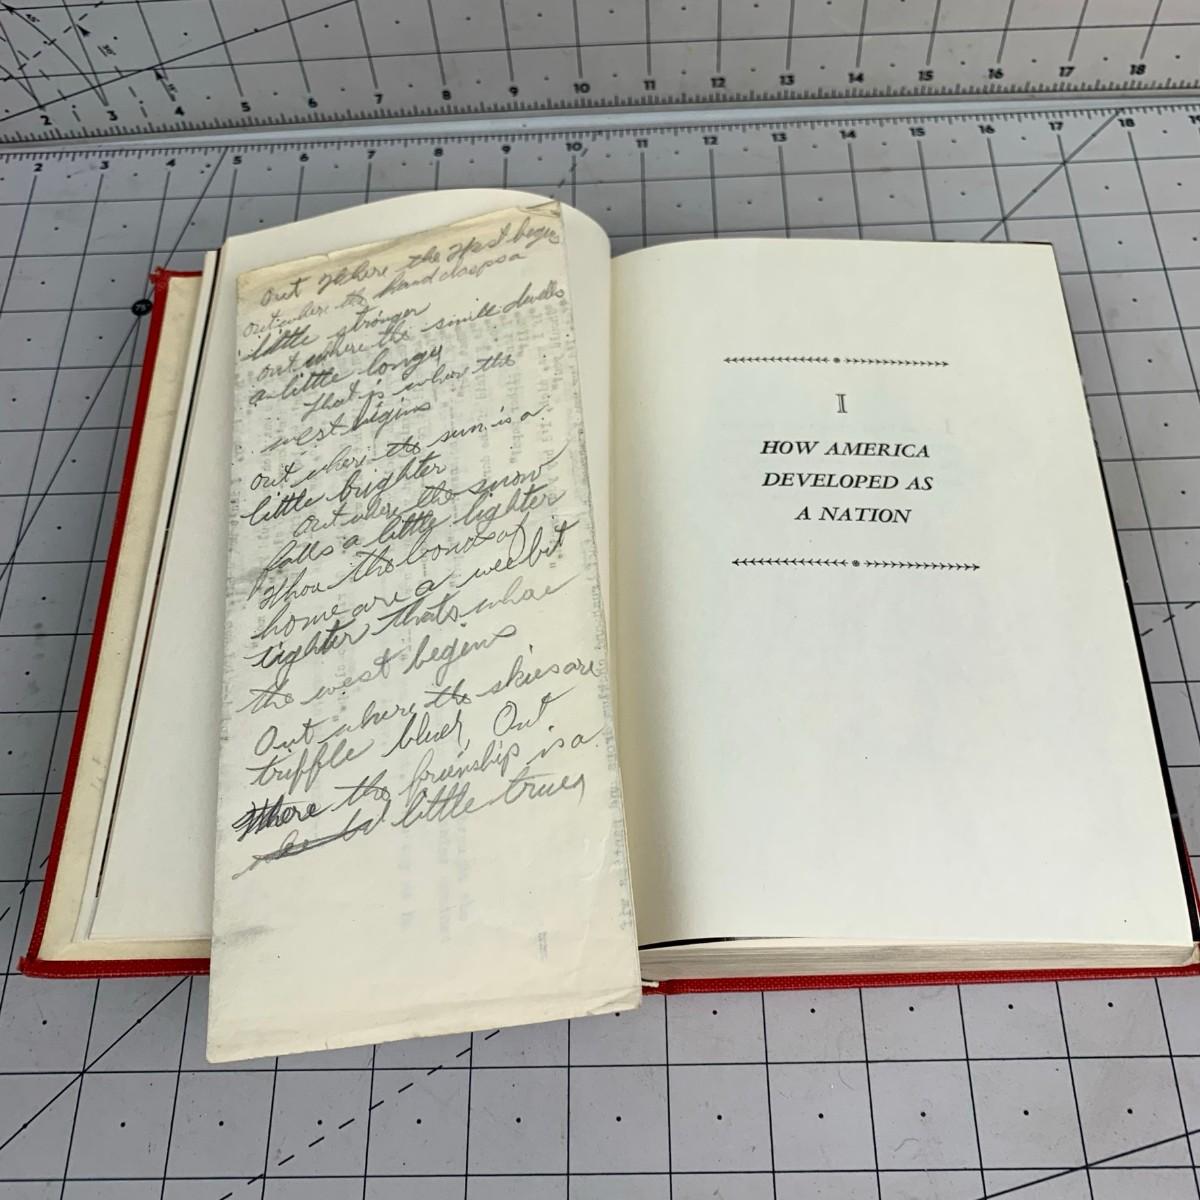 Out Where the West begins
out where the hand clasps a
little stronger
out where the smile dwells
a little longer
that is where the
west begins
out where the sun is a
little brighter
Out where the snow
falls a little lighter
Whou the bonds of
home are a wee bit
tighter thats whae
the west begins
Out where the skies are
triffle bluer, Out
Where the frienship is a
little truer
I
HOW AMERICA
DEVELOPED AS
A NATION
2 3 4 5 6 7 8 9 10 11 12 13 14 15 16 17 18
2 3 4 5 6 7 8 9 10 11 12 13 14 15 16 17 18 19